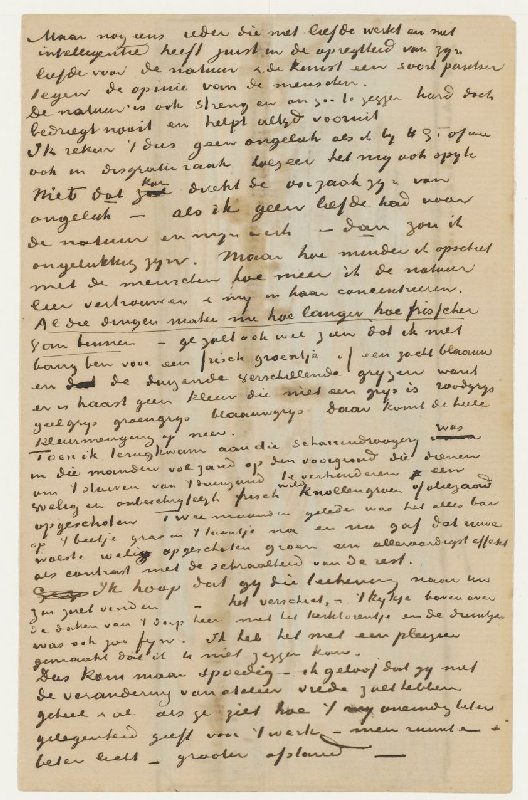 Maar nog eens ieder die met liefde werkt en met
intelligentie heeft juist in de opregtheid van zyn
liefde voor de natuur & de kunst een soort pantser
tegen de opinie van de menschen.
De natuur is ook streng en om zoo te zeggen hard doch
bedriegt nooit en helpt altyd vooruit
Ik reken 't dus geen ongeluk als ik by H.G. of wie
ook in disgratie raak hoezeer het my ook spyte
Niet dat kan direkt de oorzaak zyn van
ongeluk – als ik geen liefde had voor
de natuur en myn werk – dan zou ik
ongelukkig zyn. Maar hoe minder ik opschiet
met de menschen hoe meer ik de natuur
leer vertrouwen & my in haar concentreeren.
Al die dingen maken me hoe langer hoe frisscher
van binnen – ge zult ook wel zien dat ik niet
bang ben voor een frisch groentje of een zacht blaauw
en de duizende verschillende gryzen want
er is haast geen kleur die niet een grys is roodgrys
geelgrys groengrys blaauwgrys daar komt de heele
kleurmenging op neer.
Toen ik terugkwam aan die scharrendroogery was
in die manden vol zand op den voorgrond die dienen
om 't stuiven van 't duinzand te verhinderen een
welig en onbeschryfelyk frisch wild knollengroen of oliezaad
opgeschoten Twee maanden geleden was het alles baar
op 't beetje gras in 't tuintje na en nu gaf dat ruwe
woeste welig opgeschoten groen een alleraardigst effekt
als contrast met de schraalheid van de rest.
Ik hoop dat gy die teekening naar uw
zin zult vinden – het verschiet, – 't kykje boven over
de daken van 't dorp heen met het kerktorentje en de duintjes
was ook zoo fyn. Ik heb het met een pleizier
gemaakt dat ik U niet zeggen kan.
Dus kom maar spoedig – ik geloof dat gy met
de verandering van atelier vrede zult hebben
geheel & al als ge ziet hoe 't my oneindig beter
gelegenheid geeft voor 't werk – meer ruimte –
beter licht – grooter afstand –